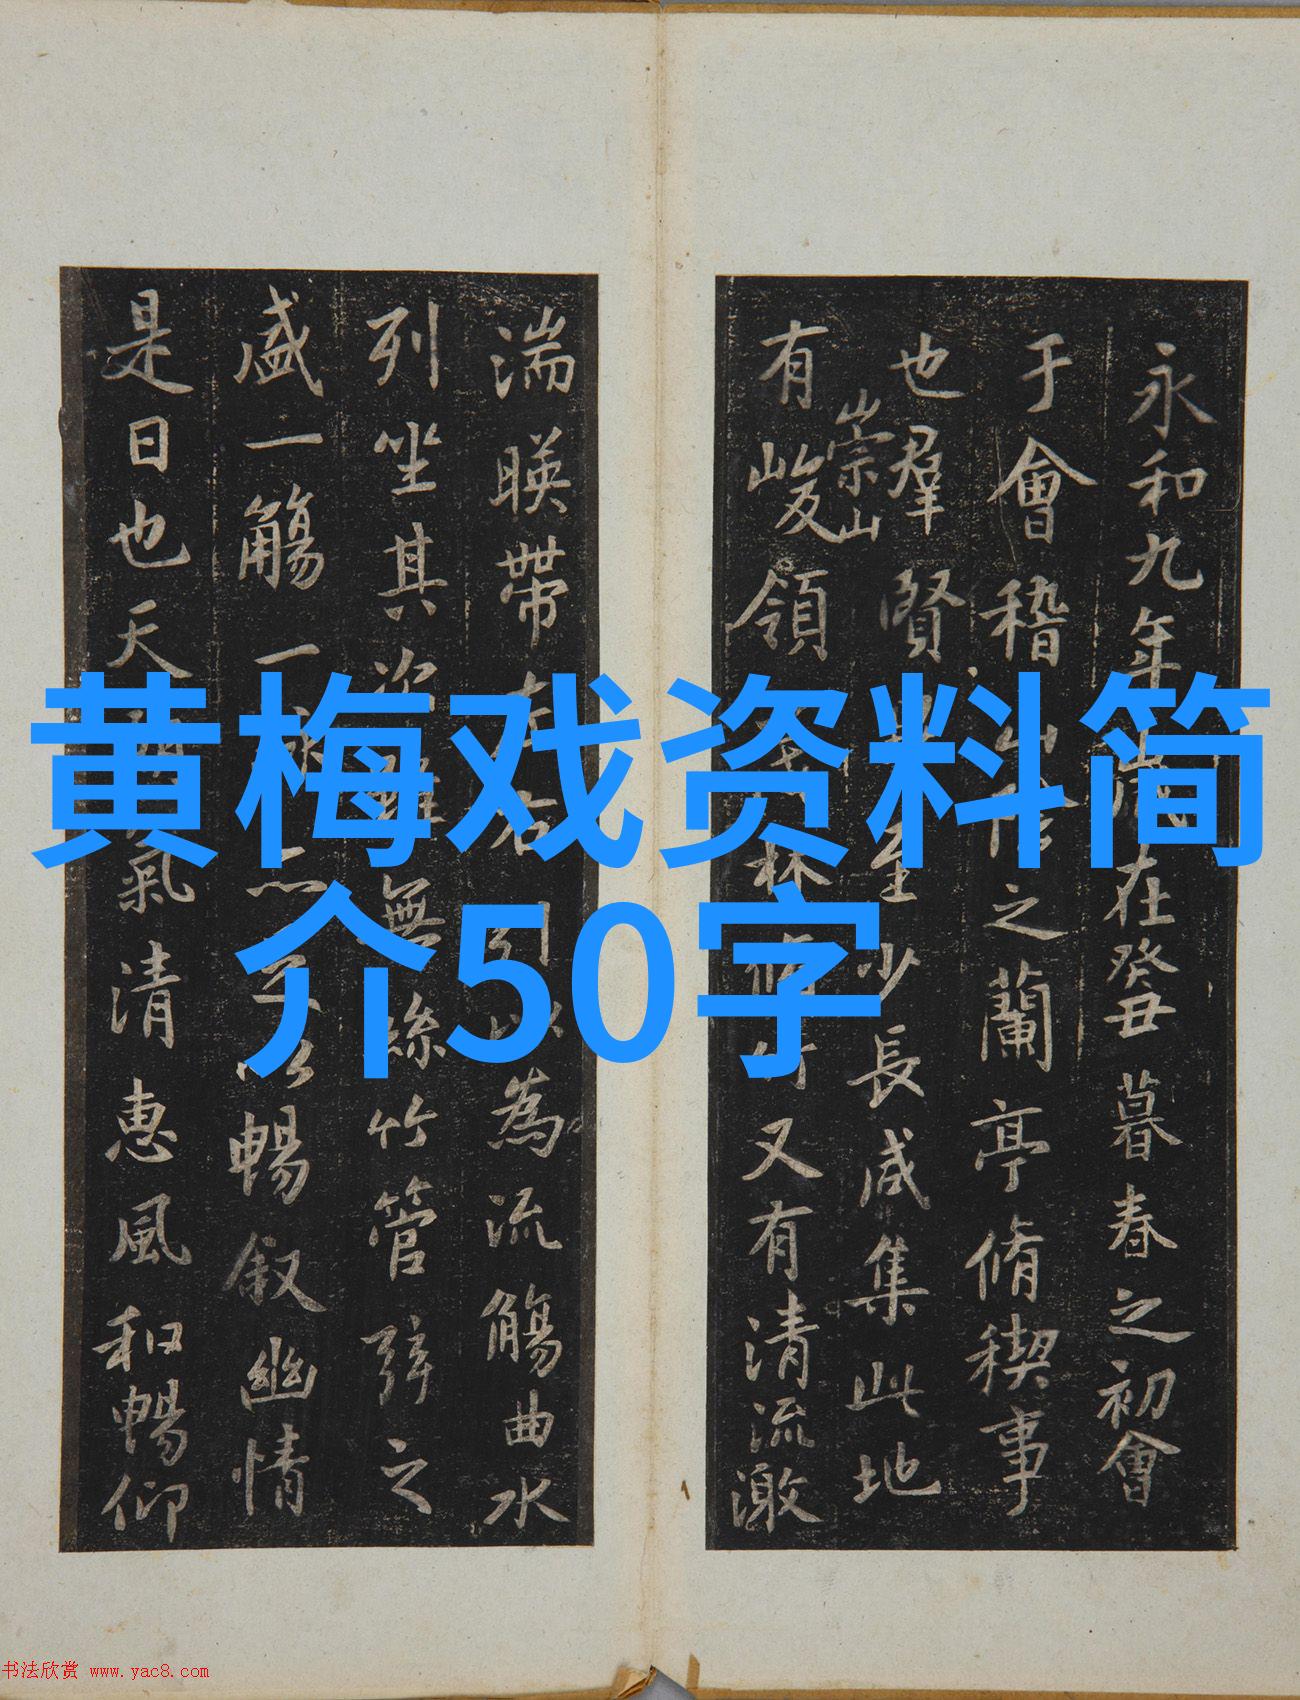 永和九年在癸丑暮春之初會
于會稽山之蘭亭脩稧事
也羣賢至少長咸集此地
崇山
有峻領林脩又有清流激
湍暎帶左右引以為流觴曲水
列坐其次無絲竹管弦之
盛一觴一詠亦足以暢叙幽情
是日也天氣清惠風和暢仰
黄梅戏资料简
介50字
书法欣赏 www.yac8.com